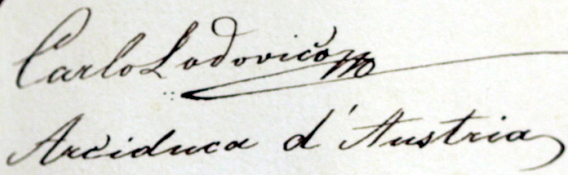 Carlo Lodovico
Arciduca d'Austria